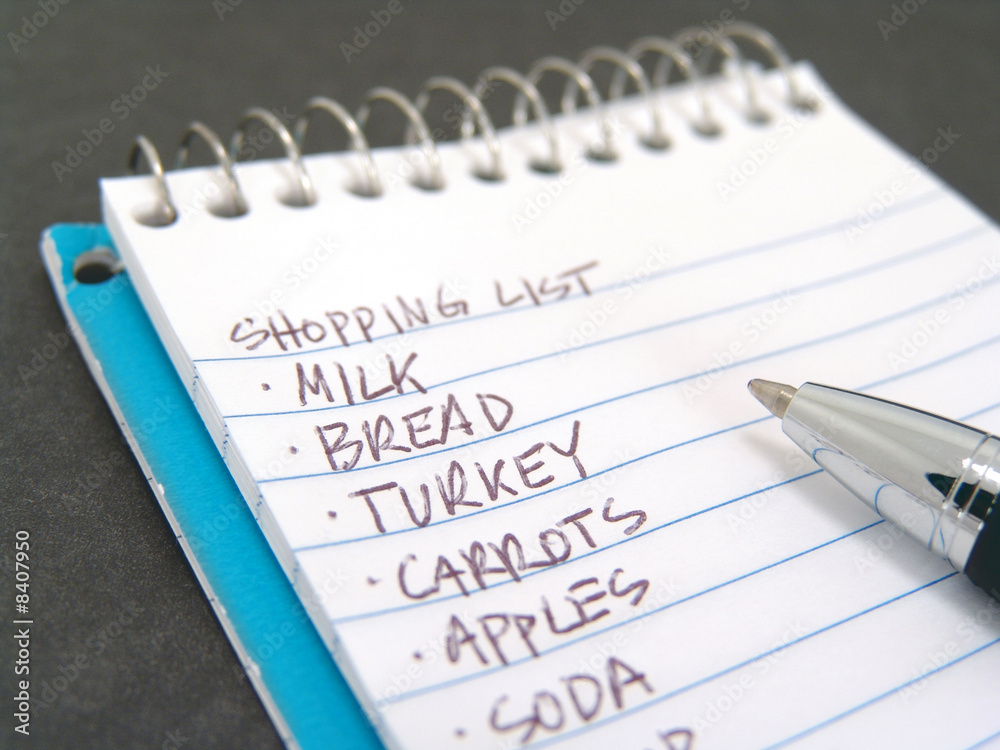 SHOPPING LIST
· MILK
· BREAD
· TURKEY
· CARROTS
· APPLES
· SODA
Adobe Stock | #8407950